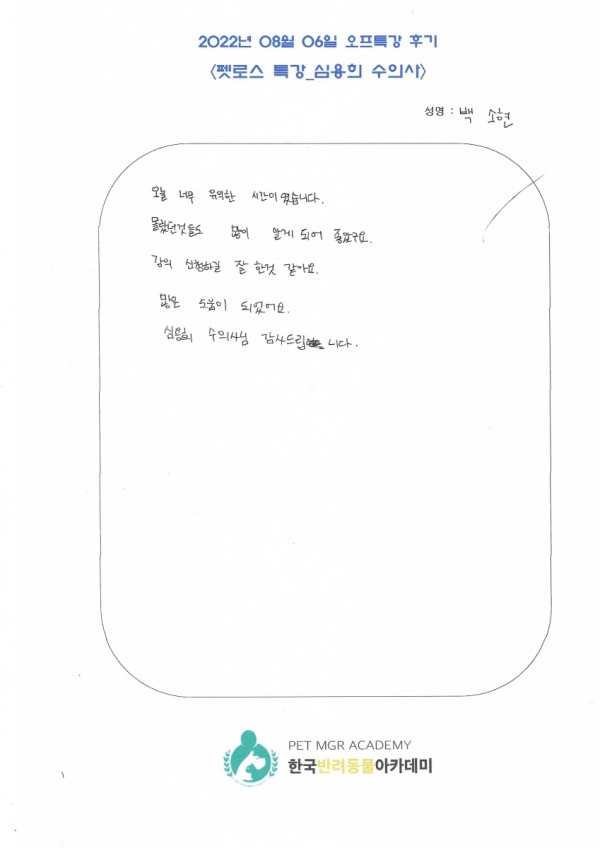 2022년 08월 06일 오프특강 후기
<펫로스 특강_심용희 수의사>
성명 : 백 소현
오늘 너무 유익한 시간이였습니다.
몰랐던것들도 많이 알게 되어 좋았구요.
강의 신청하길 잘 한것 같아요.
많은 도움이 되었어요.
심용희 수의사님 감사드립니다.
PET MGR ACADEMY
한국반려동물아카데미